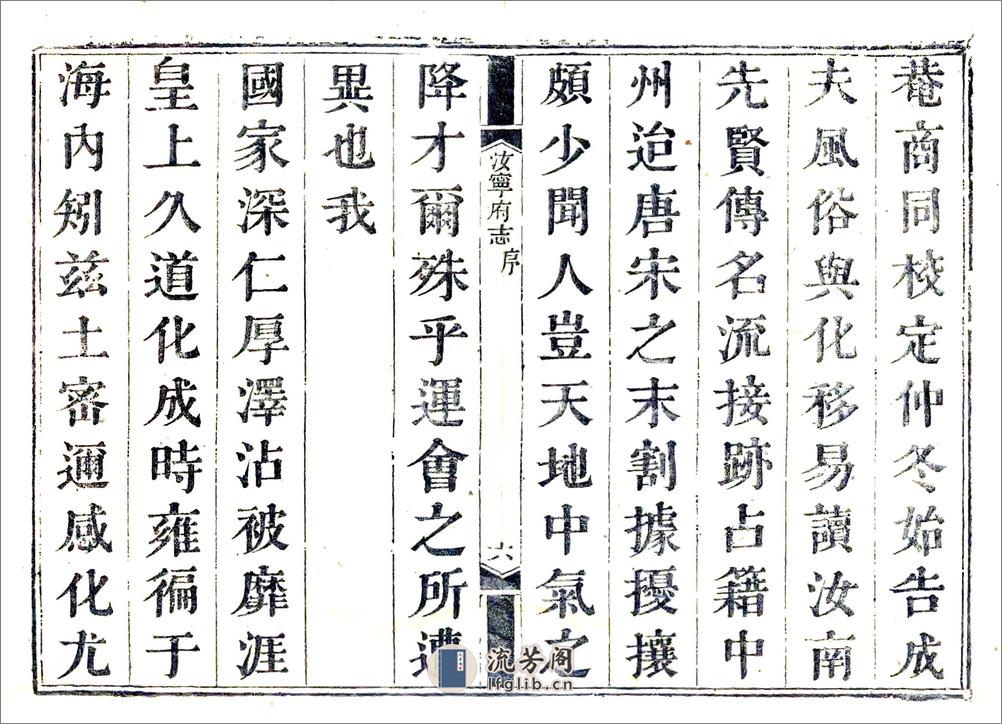 菴商同校定仲冬始告成
夫風俗與化移易讀汝南
先賢傳名流接跡占籍中
州迨唐宋之末割據擾攘
頗少聞人豈天地中氣之
降才爾殊乎運會之所遭
異也我
國家深仁厚澤沾被靡涯
皇上久道化成時雍徧于
海內矧兹土密邇感化尤
汝寧府志
序
六
流芳阁
lfglib.cn